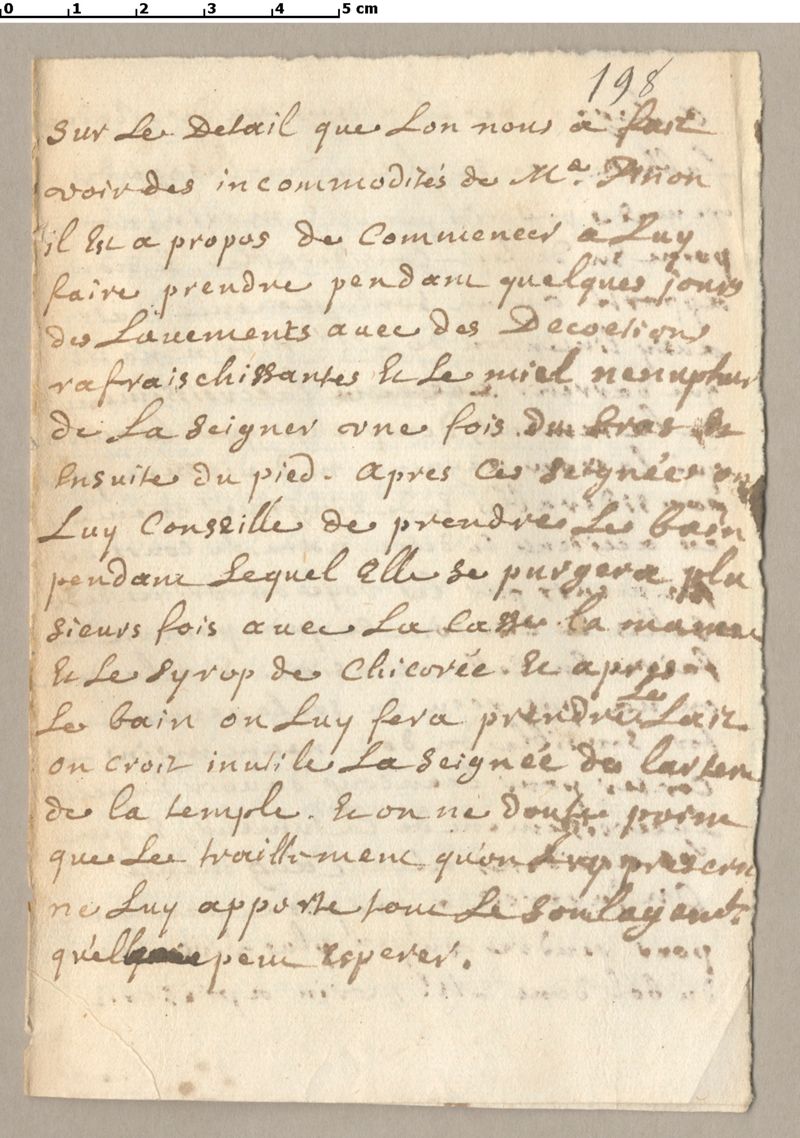 0 1 2 3 4 5 cm
198
Sur Le Detail que Lon nous a fait
voir des incommodités de Me.
il Est a propos de Commencer à Luy
faire prendre pendant quelques jours
des Lavements avec des Decoctions
rafraischissantes Et Le miel nenuphar
de La Seigner vne fois du bras Et
Ensuite du pied. Apres Ces Seignées on
Luy Conseille de prendre Le bain
pendant Lequel Elle se purgera plu
sieurs fois avec La Casse la manne
Et Le Syrop de Chicorée. Et apres
Le bain on Luy fera prendre Le Lait
on croit inutile La Seignée de lartere
de la temple. Et on ne doute point
que Le traittement qu'on Luy prescrit
ne Luy apporte tout Le Soulagemt.
qu'elle peut Esperer.